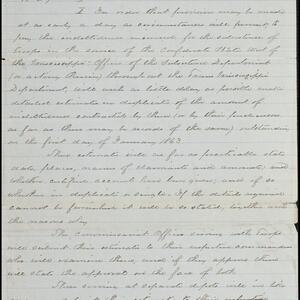 I. In order that provision may be made
at as early a day as circumstances will permit, to
pay the indebtedness incurred for the subsistence of
troops in the service of the Confederate States West of
the Mississippi: Officers of the Subsistence Department
(or acting therein) throughout the Trans Mississippi
Department, will with as little delay as possible make
detailed estimates in duplicate of the amount of
indebtedness contracted by them (or by their predecessors
as far as there may be records of the same) outstanding
on the first day of January 1863.
These estimates will as far as practicable state
date, place, name of claimants and amount; and
whether certified accounts have been given, and if so
whether in duplicate or single. If the details required
cannot be furnished it will be so stated, together with
the reasons why.
The Commissariat Officers serving with troops
will submit their estimates to their respective commanders
who will examine them, and if they approve them
will state the approval on the face of both.
Those serving at separate depots will in like